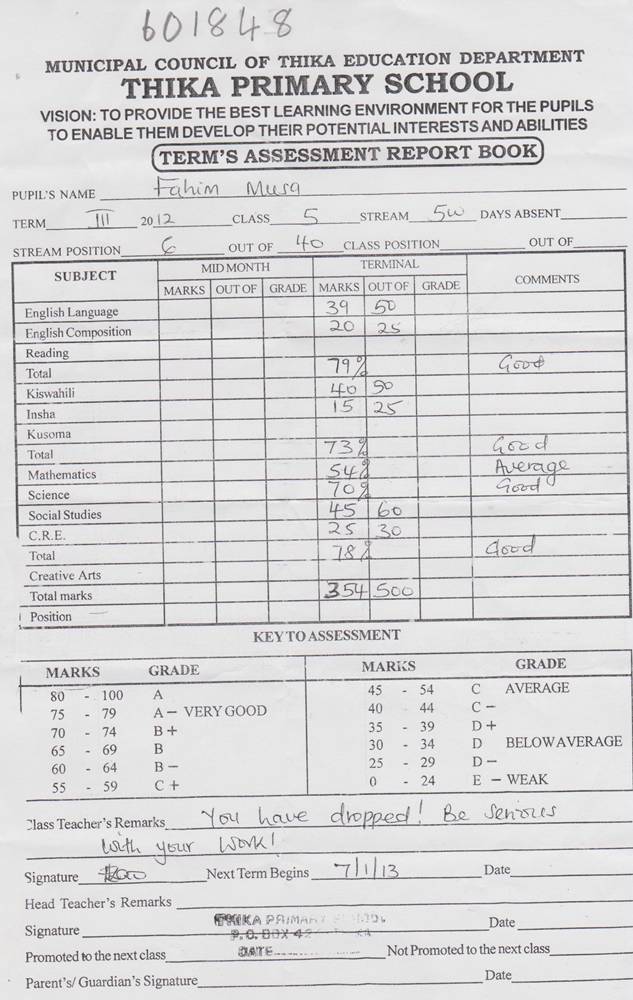 601848
MUNICIPAL COUNCIL OF THIKA EDUCATION DEPARTMENT
THIKA PRIMARY SCHOOL
VISION: TO PROVIDE THE BEST LEARNING ENVIRONMENT FOR THE PUPILS
TO ENABLE THEM DEVELOP THEIR POTENTIAL INTERESTS AND ABILITIES
TERM'S ASSESSMENT REPORT BOOK
PUPIL'S NAME Fahim Musa
TERM III 2012 CLASS 5 STREAM 5W DAYS ABSENT
STREAM POSITION 6 OUT OF 40 CLASS POSITION OUT OF
SUBJECT MID MONTH TERMINAL COMMENTS
MARKS OUT OF GRADE MARKS OUT OF GRADE
English Language 39 50
English Composition 20 25
Reading
Total 79% Good
Kiswahili 40 50
Insha 15 25
Kusoma
Total 73% Good
Mathematics 54% Average
Science 70% Good
Social Studies 45 60
C.R.E. 25 30
Total 78% Good
Creative Arts
Total marks 354 500
Position
KEY TO ASSESSMENT
MARKS GRADE MARKS GRADE
80 - 100 A 45 - 54 C AVERAGE
75 - 79 A- VERY GOOD 40 - 44 C-
70 - 74 B+ 35 - 39 D+
65 - 69 B 30 - 34 D BELOW AVERAGE
60 - 64 B- 25 - 29 D-
55 - 59 C+ 0 - 24 E - WEAK
Class Teacher's Remarks You have dropped! Be serious
with your work!
Signature Next Term Begins 7/1/13 Date
Head Teacher's Remarks
THIKA PRIMARY SCHOOL
Signature P.O. BOX Date
Promoted to the next class DATE Not Promoted to the next class
Parent's/ Guardian's Signature Date